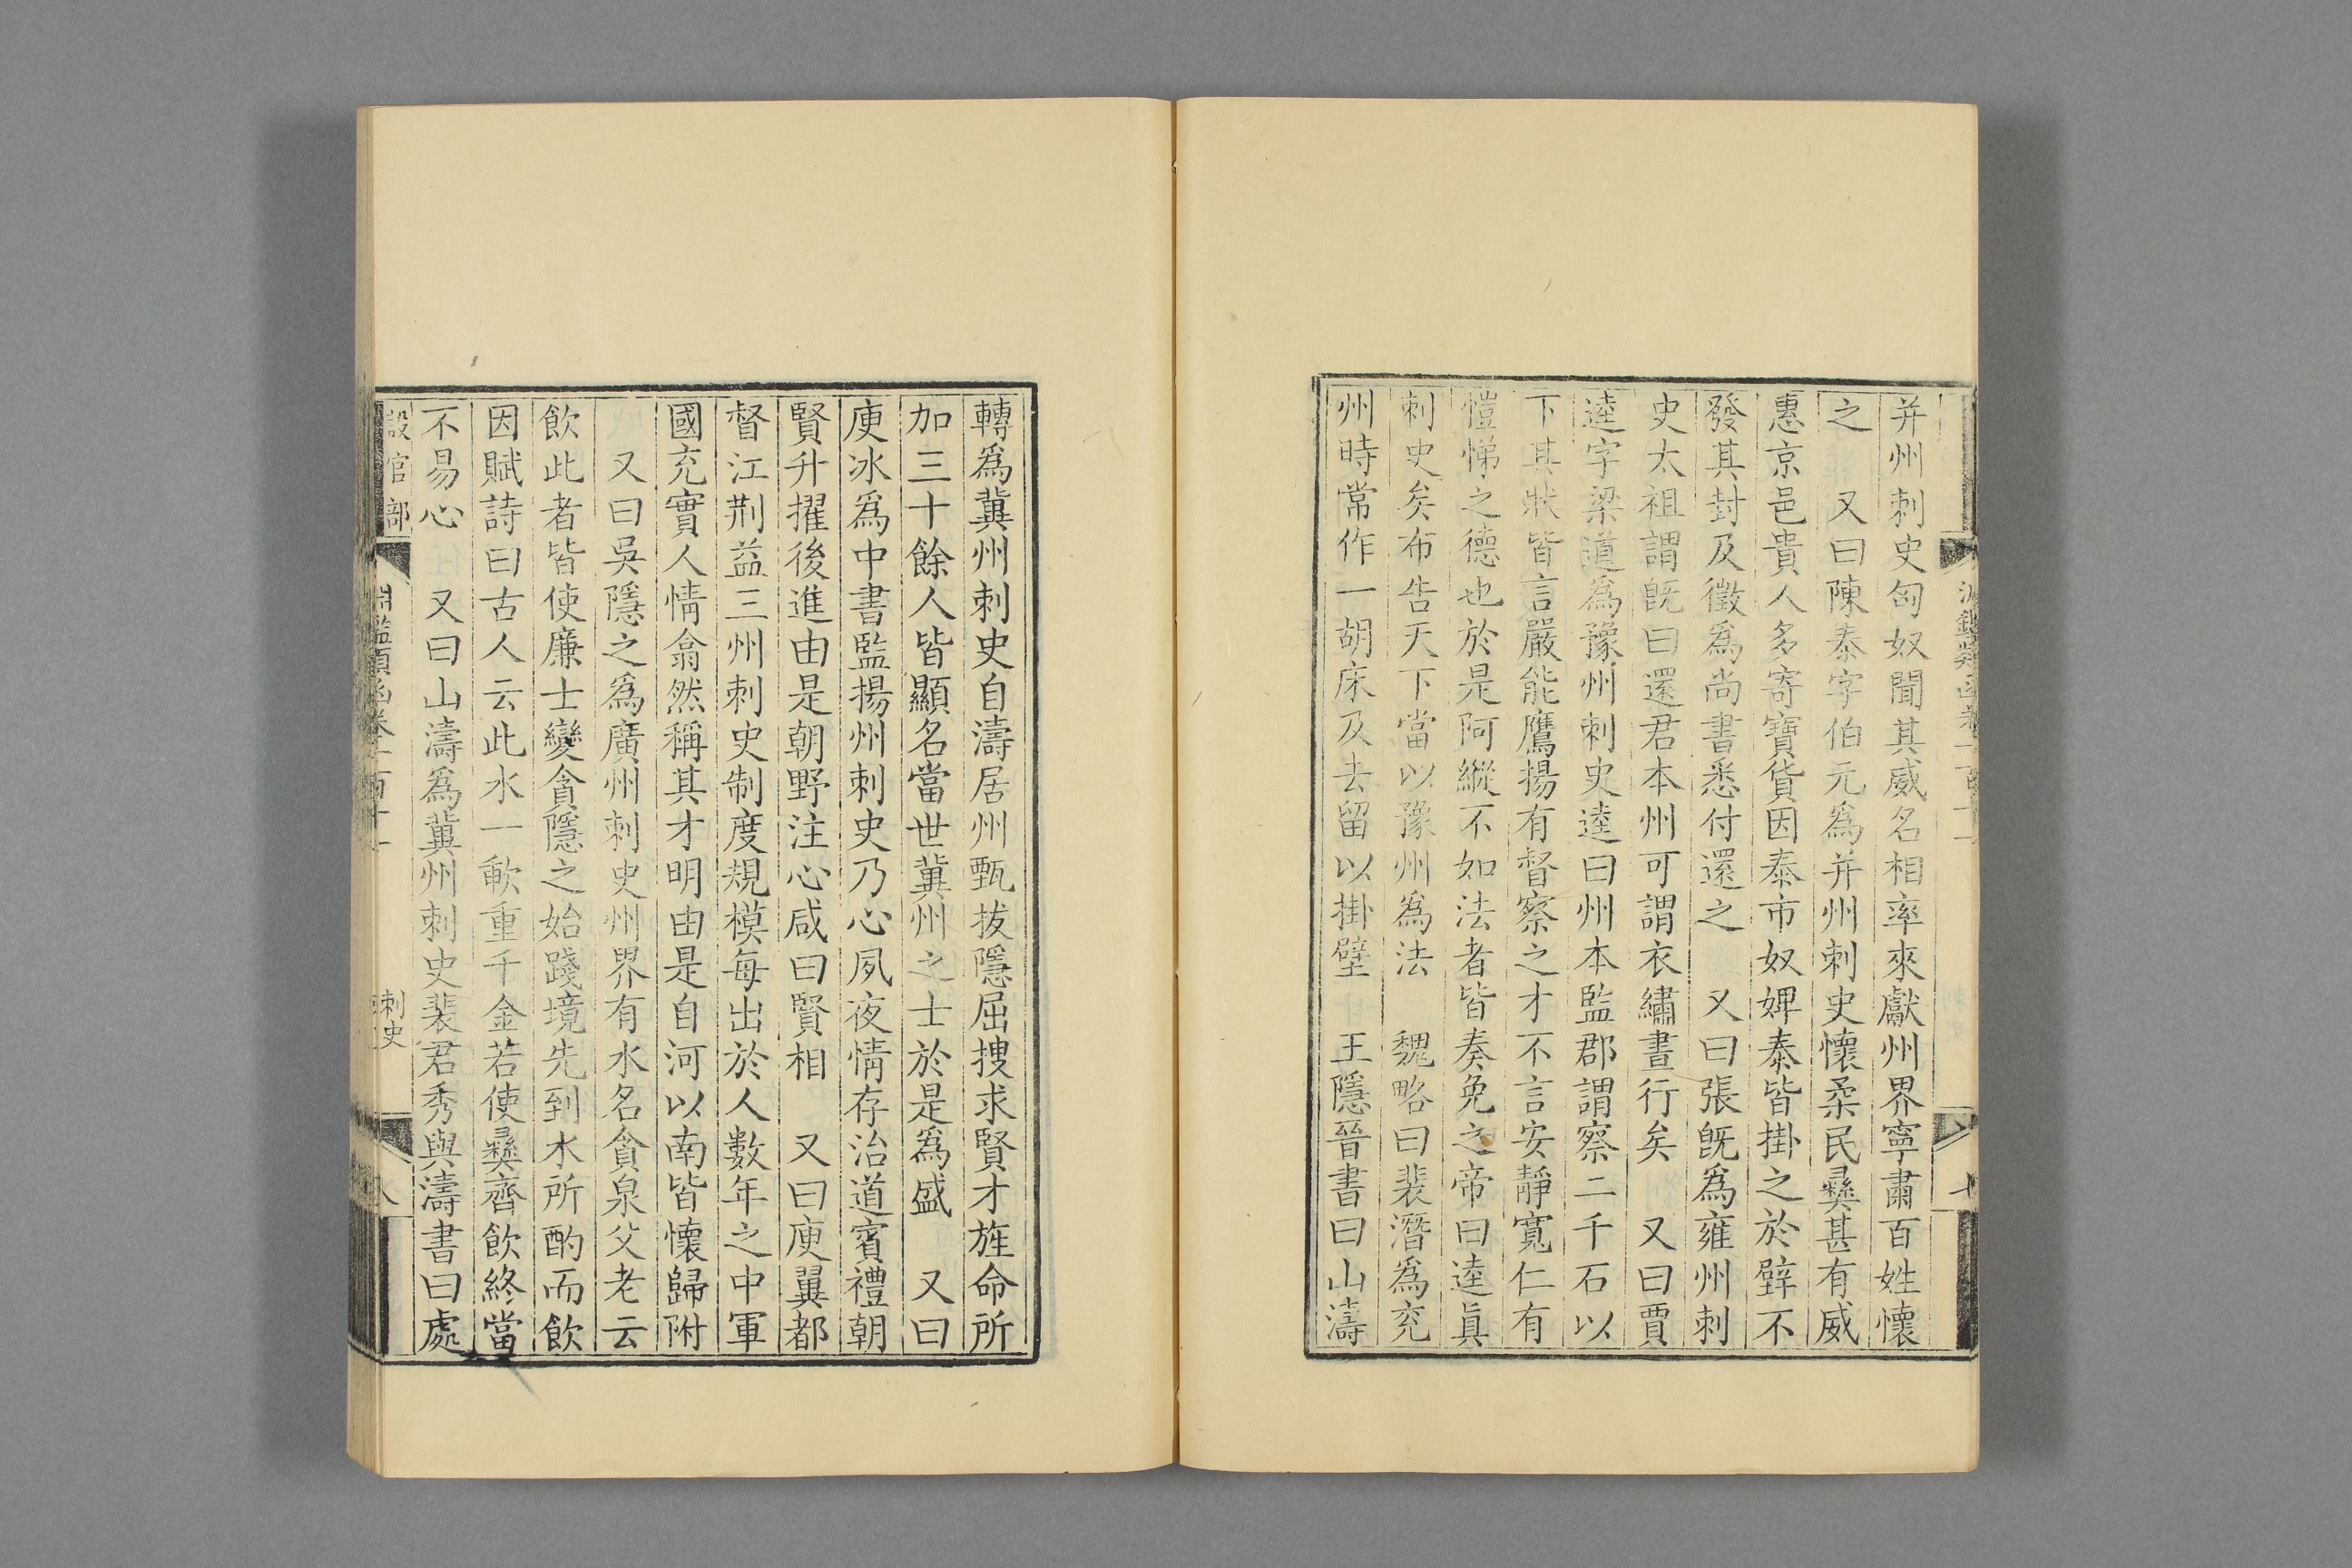 并州刺史匈奴聞其威名相率來獻州界寧肅百姓懷
之 又曰陳泰字伯元為并州刺史懷柔民彝甚有威
惠京邑貴人多寄寶貨因泰市奴婢泰皆掛之於壁不
發其封及徵爲尚書悉付還之 又曰張旣爲雍州刺
史太祖謂旣曰還君本州可謂衣繡晝行矣 又曰賈
逵字梁道爲豫州刺史逵曰州本監郡謂察二千石以
下其狀皆言嚴能鷹揚有督察之才不言安靜寬仁有
愷悌之德也於是阿縱不如法者皆奏免之帝曰逵眞
刺史矣布告天下當以豫州爲法 魏略曰裴潛爲兖
州時常作一胡床及去留以掛壁 王隱晉書曰山濤
轉爲冀州刺史自濤居州甄拔隱屈搜求賢才旌命所
加三十餘人皆顯名當世冀州之士於是爲盛 又曰
庾冰爲中書監揚州刺史乃心夙夜情存治道賓禮朝
賢升擢後進由是朝野注心咸曰賢相 又曰庾翼都
督江荆益三州刺史制度規模每出於人數年之中軍
國充實人情翕然稱其才明由是自河以南皆懷歸附
又曰吳隱之爲廣州刺史州界有水名貪泉父老云
飲此者皆使廉士變貪隱之始踐境先到水所酌而飲
因賦詩曰古人云此水一歃重千金若使彝齊飲終當
不易心 又曰山濤爲冀州刺史裴君秀與濤書曰處
設官部 淵鑑類函卷一百十一 刺史 八